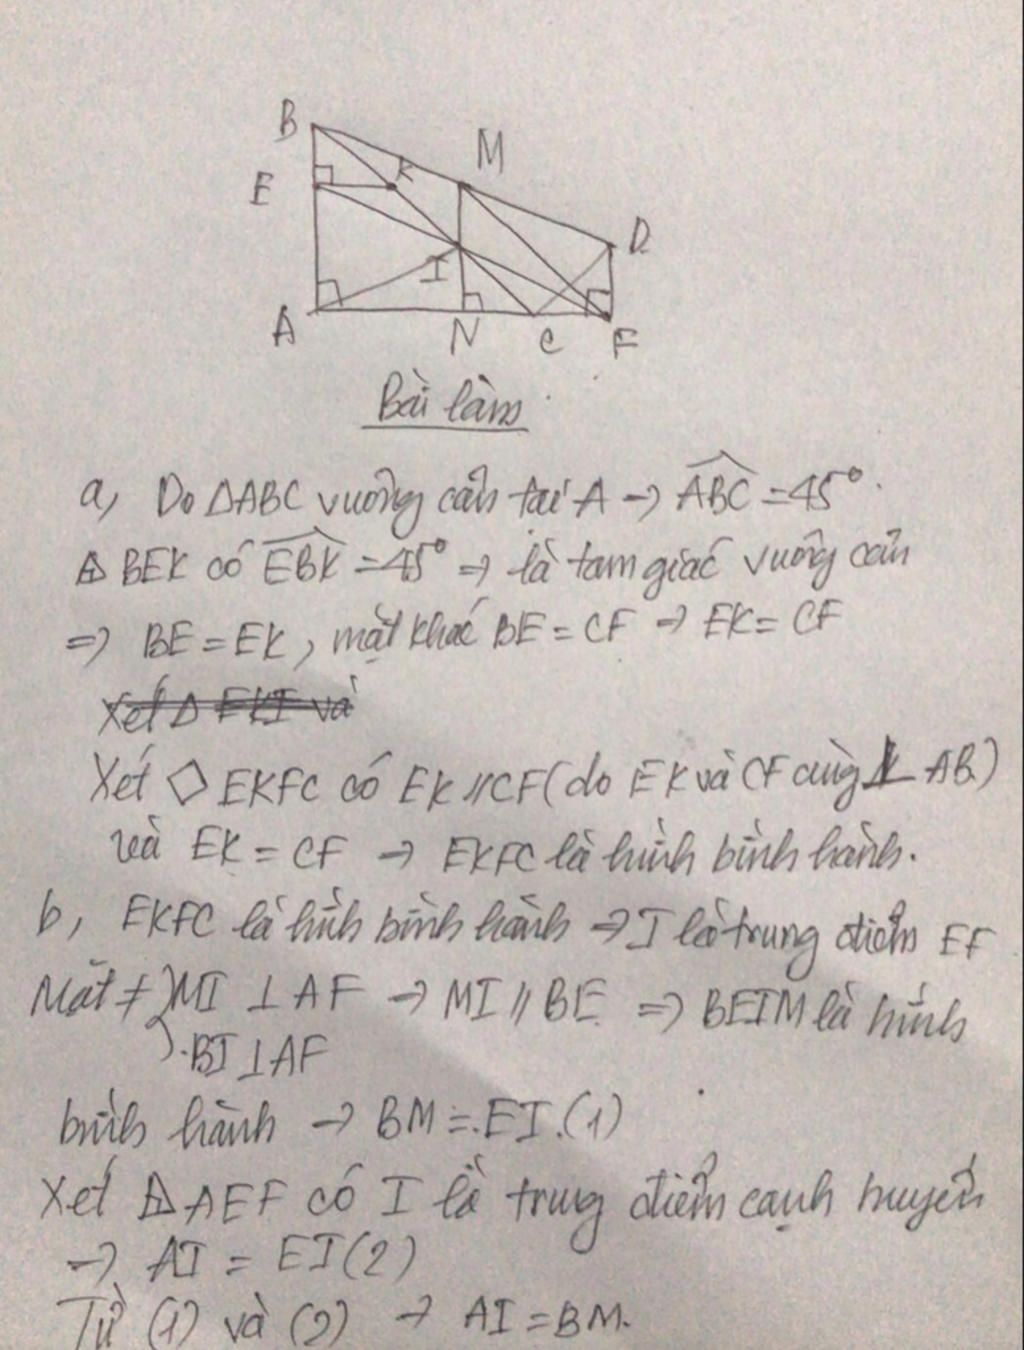 B
M
E
K
D
I
A
N
C
F
Bài làm
a, Do ΔABC vuông cân tại A → ABC = 45°.
Δ BEK có EBK = 45° => là tam giác vuông cân
=> BE = EK, mặt khác BE = CF → EK = CF
Xét Δ EKI và
Xét ◇ EKFC có EK // CF (do EK và CF cùng ⊥ AB)
và EK = CF → EKFC là hình bình hành.
b, EKFC là hình bình hành → I là trung điểm EF
Mặt ≠ MI ⊥ AF → MI // BE => BEIM là hình
BI ⊥ AF
bình hành → BM = EI. (1)
Xét Δ AEF có I là trung điểm cạnh huyền
→ AI = EI (2)
Từ (1) và (2) → AI = BM.